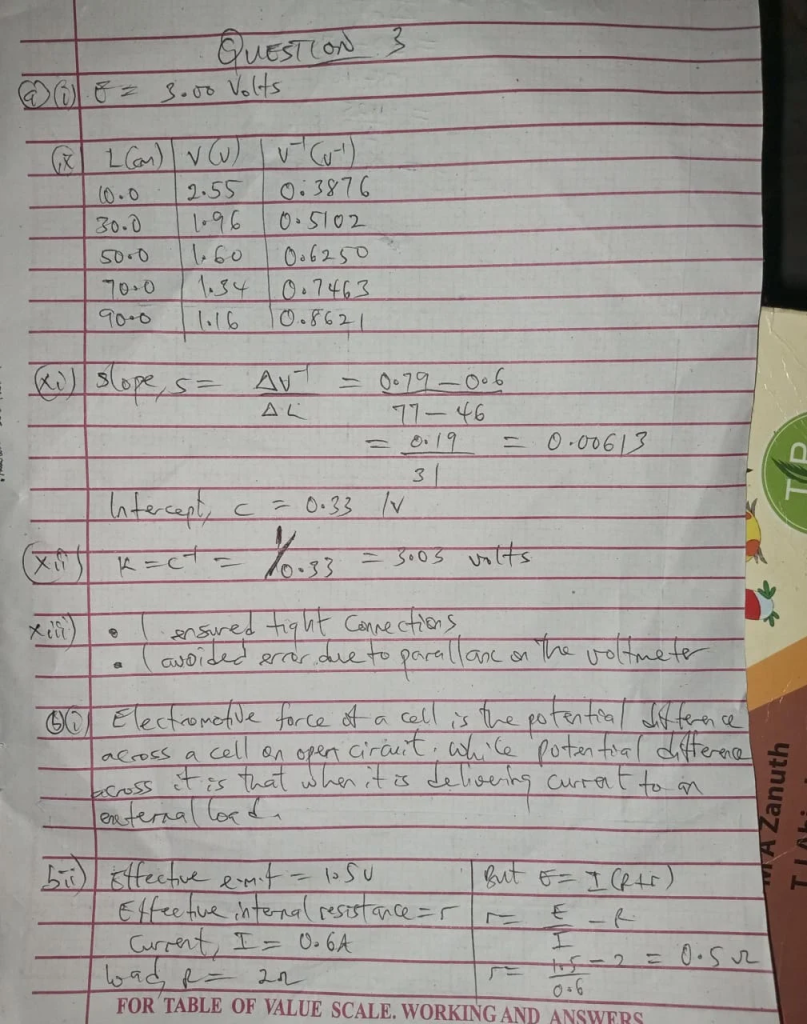 QUESTION 3
a) i) E = 3.00 Volts
ix L(cm) V(V) V⁻¹(V⁻¹)
10.0 2.55 0.3876
30.0 1.96 0.5102
50.0 1.60 0.6250
70.0 1.34 0.7463
90.0 1.16 0.8621
xi) Slope, s = ΔV⁻¹/ΔL = (0.79 – 0.6)/(77 – 46)
= 0.19/31 = 0.00613
Intercept, c = 0.33 /V
xii) K = c⁻¹ = 1/0.33 = 3.03 volts
xiii) • I ensured tight connections
• I avoided error due to parallax on the voltmeter
b) i) Electromotive force of a cell is the potential difference
across a cell on open circuit. while potential difference
across it is that when it is delivering current to an
external load.
bii) Effective e.m.f = 1.5V
Effective internal resistance = r
Current, I = 0.6A
load, R = 2Ω
But E = I(R+r)
r = E/I – R
r = 1.5/0.6 – 2 = 0.5 Ω
FOR TABLE OF VALUE SCALE. WORKING AND ANSWERS
M A Zanuth